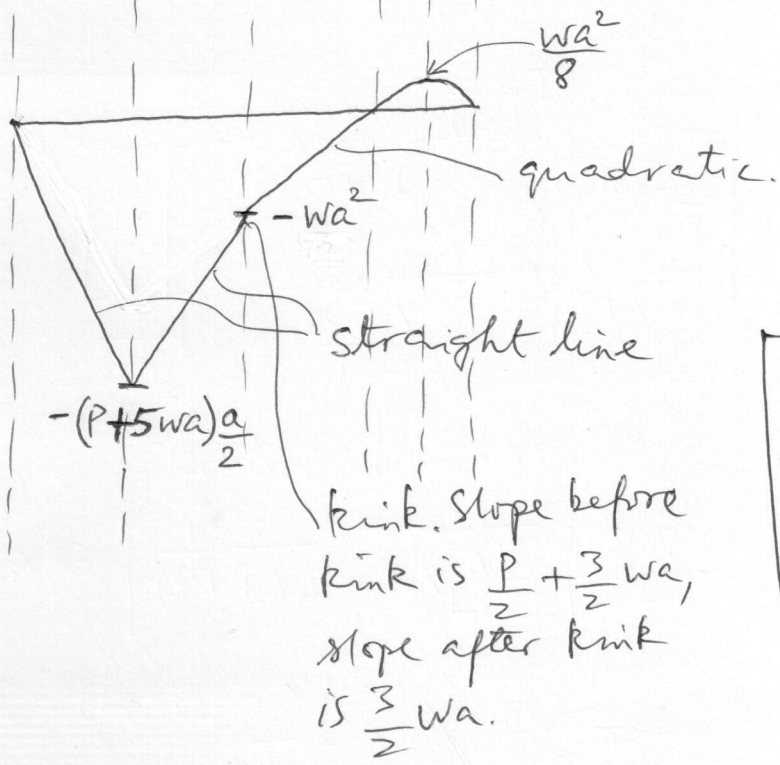 wa²/8
quadratic.
-wa²
straight line
-(P+5wa)a/2
kink. Slope before
kink is P/2 + 3/2 wa,
slope after kink
is 3/2 wa.